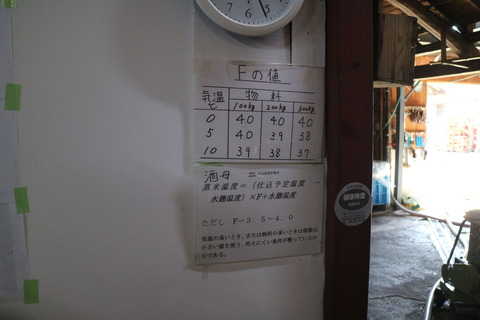 7 6 5
Fの値
気温℃ 物料
100kg 200kg 300kg
0 4.0 4.0 4.0
5 4.0 3.9 3.8
10 3.9 3.8 3.7
酒母
蒸米温度=(仕込予定温度-
水麹温度)×F+水麹温度
ただし F=3.5~4.0
気温の高いとき、または物料の多いときは
小さい値を使う。冷えにくい条件が整っているか
らである。